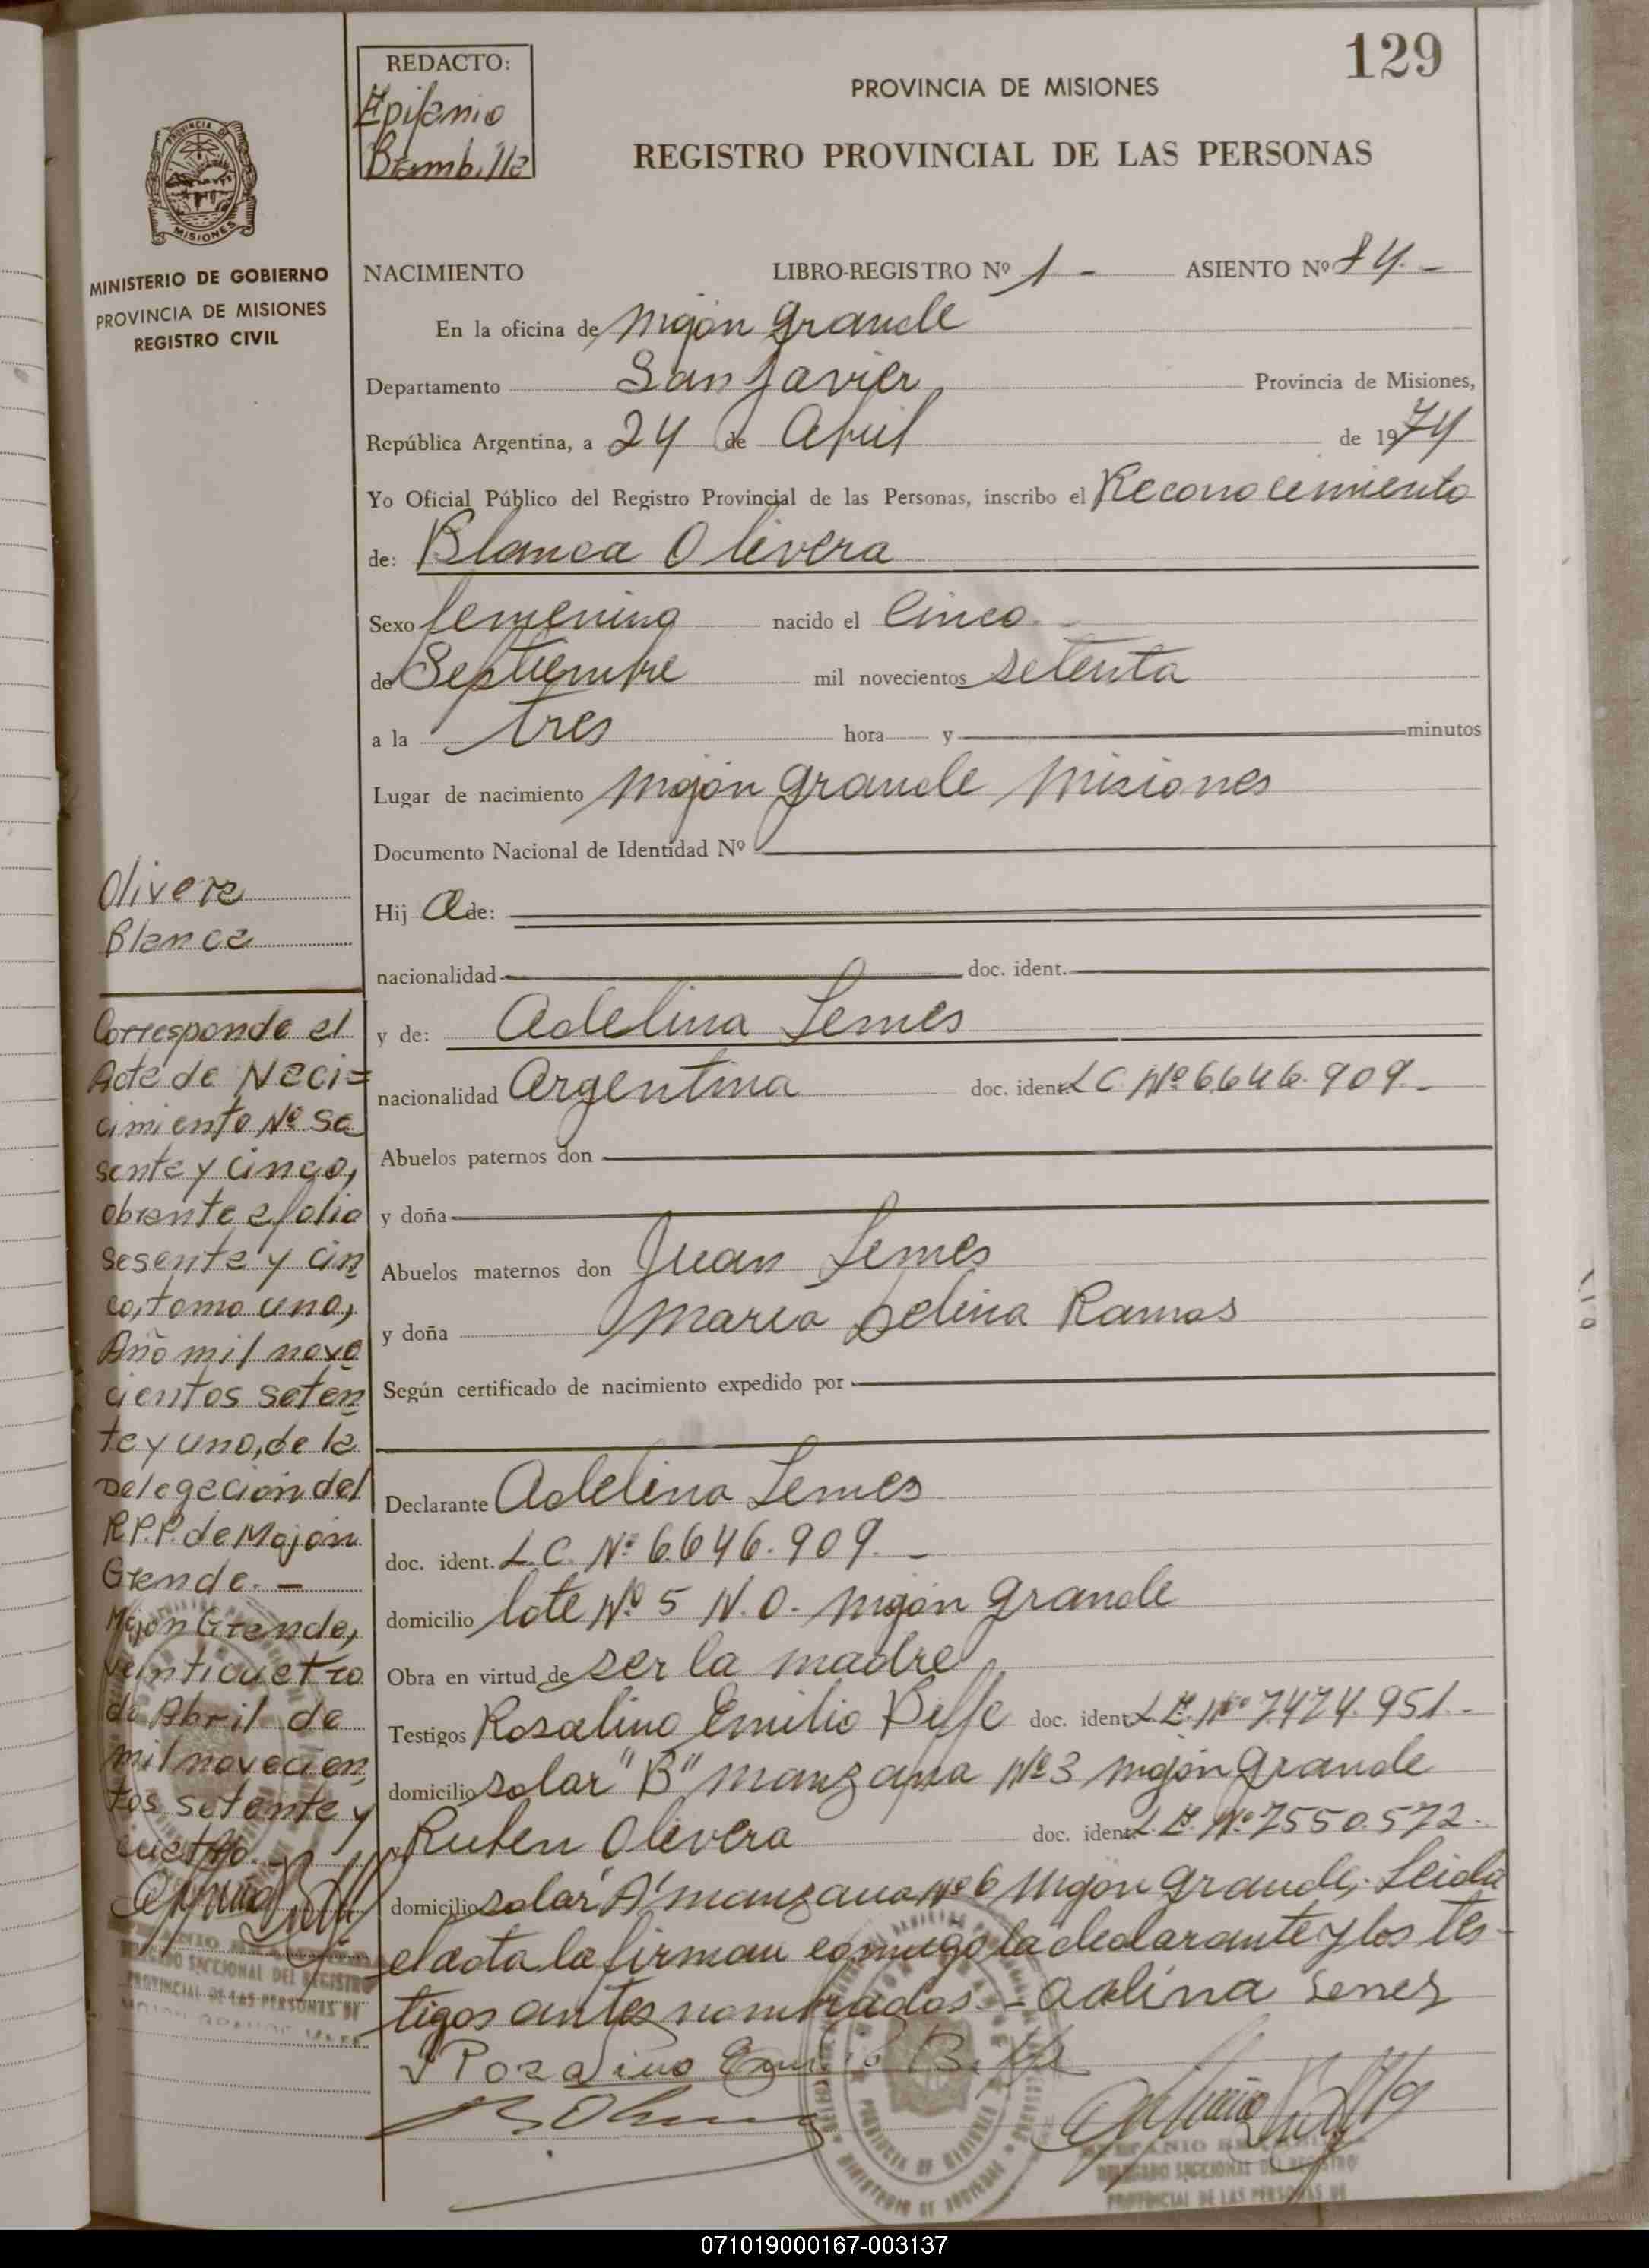 129
REDACTO:
Epifanio
Brambilla
PROVINCIA DE MISIONES
REGISTRO PROVINCIAL DE LAS PERSONAS
PROVINCIA DE
MISIONES
MINISTERIO DE GOBIERNO
PROVINCIA DE MISIONES
REGISTRO CIVIL
NACIMIENTO LIBRO-REGISTRO Nº 1 - ASIENTO Nº 84. -
En la oficina de Mojón Grande
Departamento San Javier Provincia de Misiones,
República Argentina, a 24 de Abril de 1974
Yo Oficial Público del Registro Provincial de las Personas, inscribo el Reconocimiento
de: Blanca Olivera
Sexo femenino nacido el Cinco. -
de Septiembre mil novecientos setenta
a la tres hora y minutos
Lugar de nacimiento Mojón Grande Misiones
Documento Nacional de Identidad Nº
Hij a de:
nacionalidad doc. ident.
y de: Adelina Lemes
nacionalidad Argentina doc. ident. L C. Nº 6.646.909. -
Abuelos paternos don
y doña
Abuelos maternos don Juan Lemes
y doña Maria Delina Ramos
Según certificado de nacimiento expedido por
Declarante Adelina Lemes
doc. ident. L.C. Nº 6.646.909. -
domicilio lote Nº 5 N.O. Mojón Grande
Obra en virtud de ser la madre
Testigos Rosalino Emilio doc. ident. L E. Nº 7.474.951. -
domicilio solar "B" manzana Nº 3 Mojón Grande
Ruben Olivera doc. ident. L. E. Nº 7.550.572.
domicilio solar A' manzana Nº 6 Mojón Grande, Leida
el acta la firman conmigo la declarante y los tes-
tigos antes nombrados. - Adlina Lenes
Olivera
Blanca
Corresponde al
Acta de Naci=
cimiento Nº se
senta y cinco,
obrante a folio
sesenta y cin
co, tomo uno,
Año mil nove
cientos seten
ta y uno, de la
Delegación del
R.P.P. de Mojón
Grande. -
Mojón Grande,
veinticuatro
de Abril de
mil novecien
tos setenta y
cuatro. -
DELEGADO SECCIONAL DEL REGISTRO
PROVINCIAL DE LAS PERSONAS DE
MOJON GRANDE
DELEGADO SECCIONAL DEL REGISTRO
PROVINCIAL DE LAS PERSONAS DE
071019000167-003137